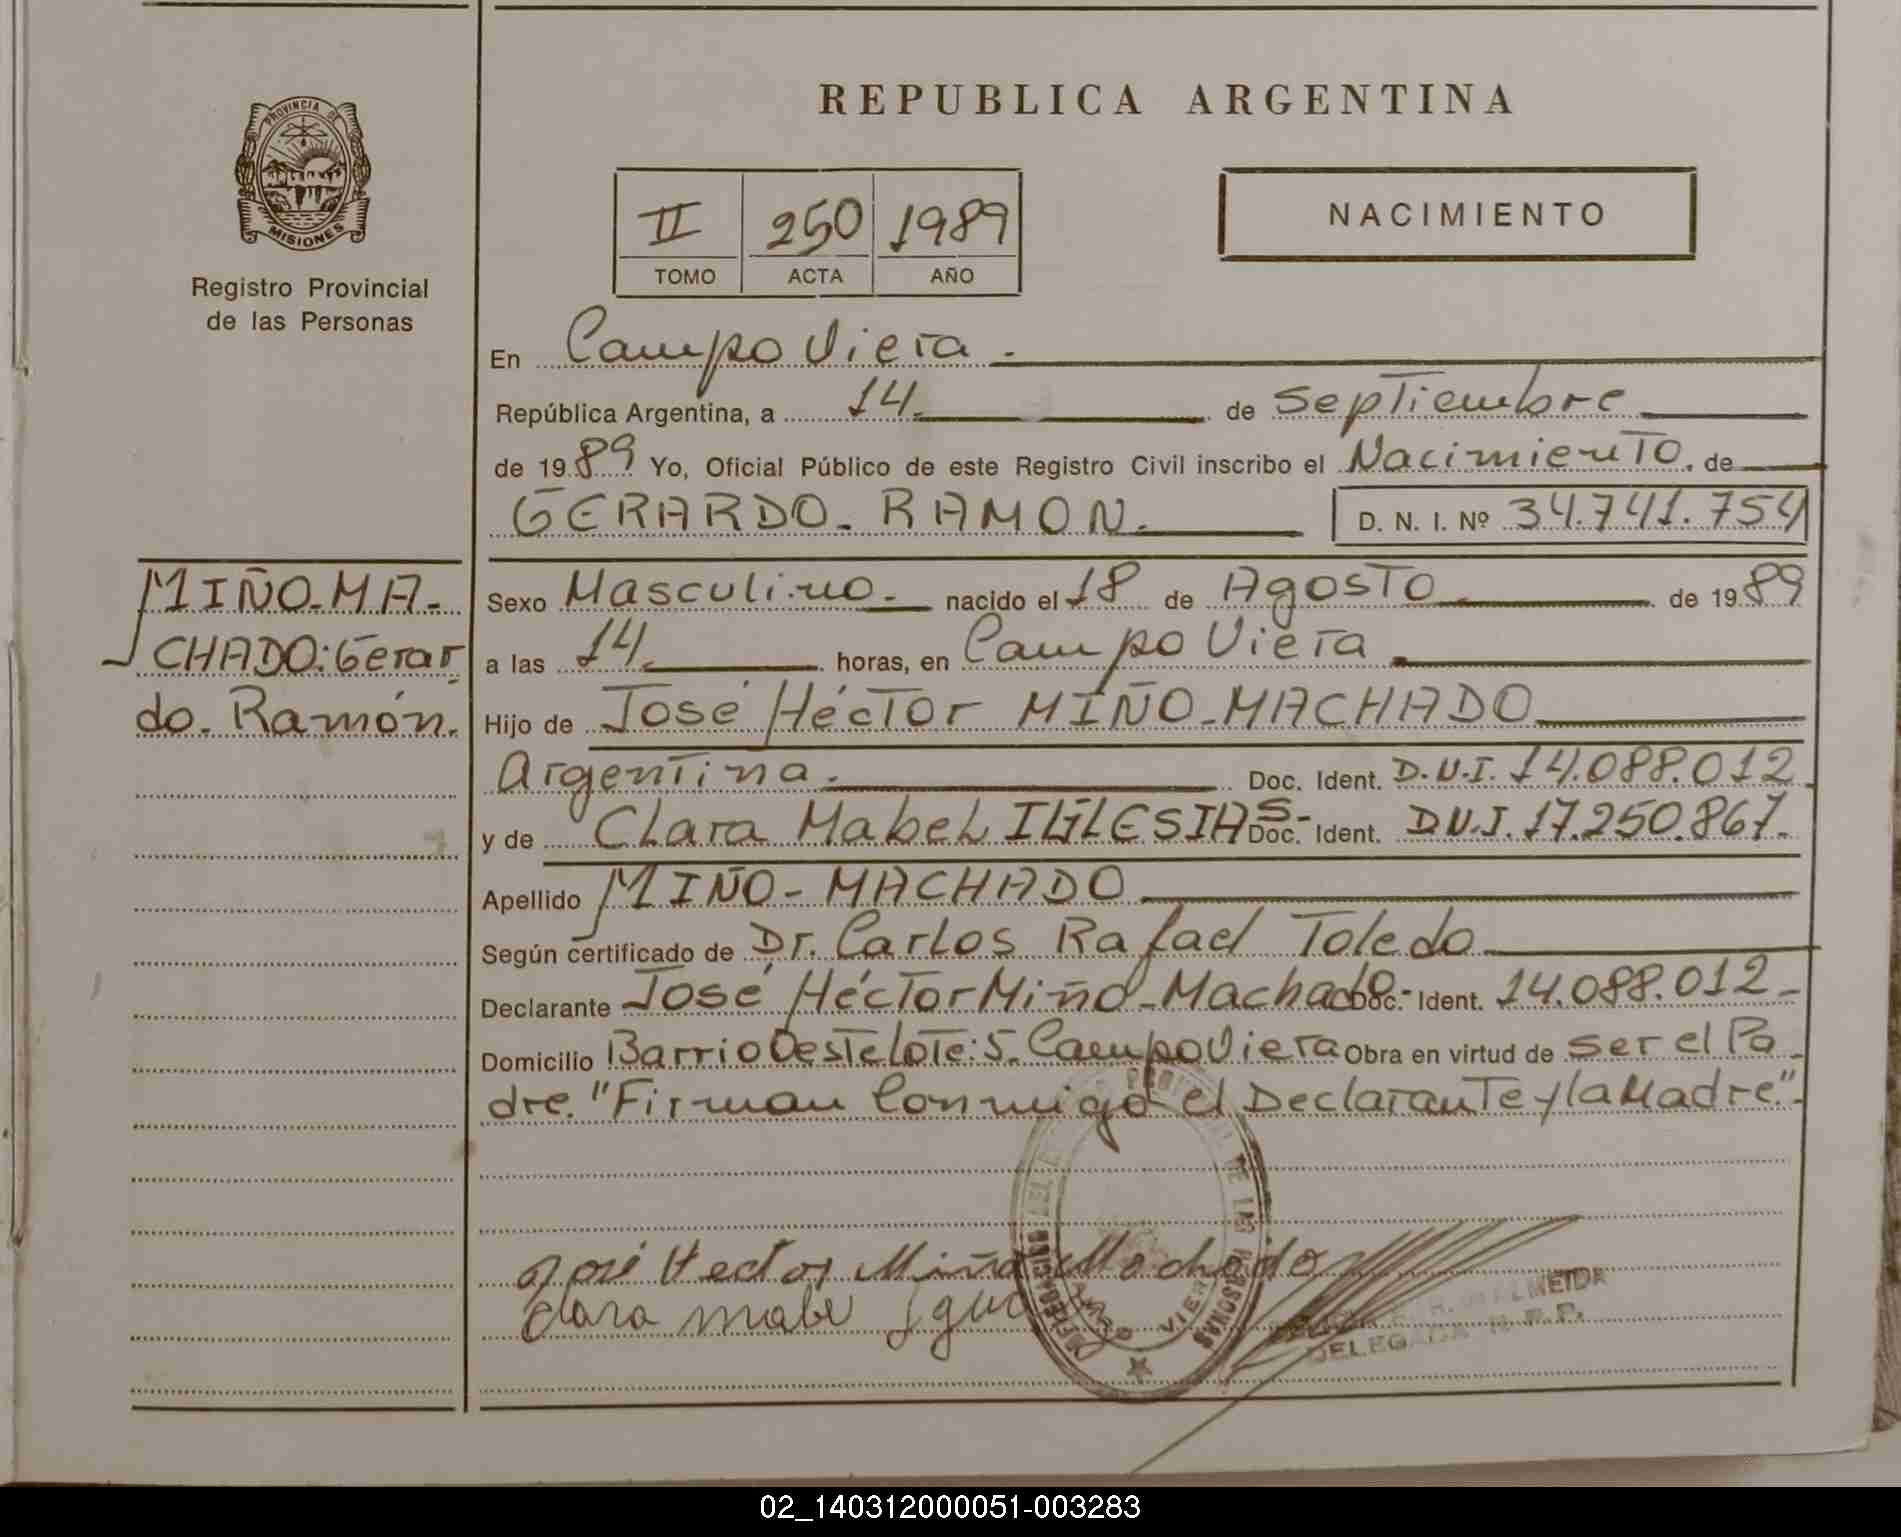 REPUBLICA ARGENTINA
PROVINCIA DE
MISIONES
Registro Provincial
de las Personas
II 250 1989
TOMO ACTA AÑO
NACIMIENTO
En Campo Viera.
República Argentina, a 14. de Septiembre
de 1989 Yo, Oficial Público de este Registro Civil inscribo el Nacimiento. de
GERARDO. RAMON. D. N. I. Nº 34.741.754
MIÑO-MA-
CHADO: Gerar
do. Ramón.
Sexo Masculino. nacido el 18 de Agosto. de 1989
a las 14. horas, en Campo Viera
Hijo de José Héctor MIÑO-MACHADO
Argentina. Doc. Ident. D.N.I. 14.088.012
y de Clara Mabel IGLESIAS- Doc. Ident. D.N.I. 17.250.867.
Apellido MIÑO-MACHADO
Según certificado de Dr. Carlos Rafael Toledo
Declarante José Héctor Miño-Machado- Doc. Ident. 14.088.012-
Domicilio Barrio Oeste Lote: 5. Campo Viera Obra en virtud de ser el Pa
dre. "Firman Conmigo el Declarante y la Madre".-
José Hector Miño Machado
Clara mabe
CAMPO VIERA
DE LAS PERSONAS
ALMEIDA
DELEGADA R.P.P.
02_140312000051-003283